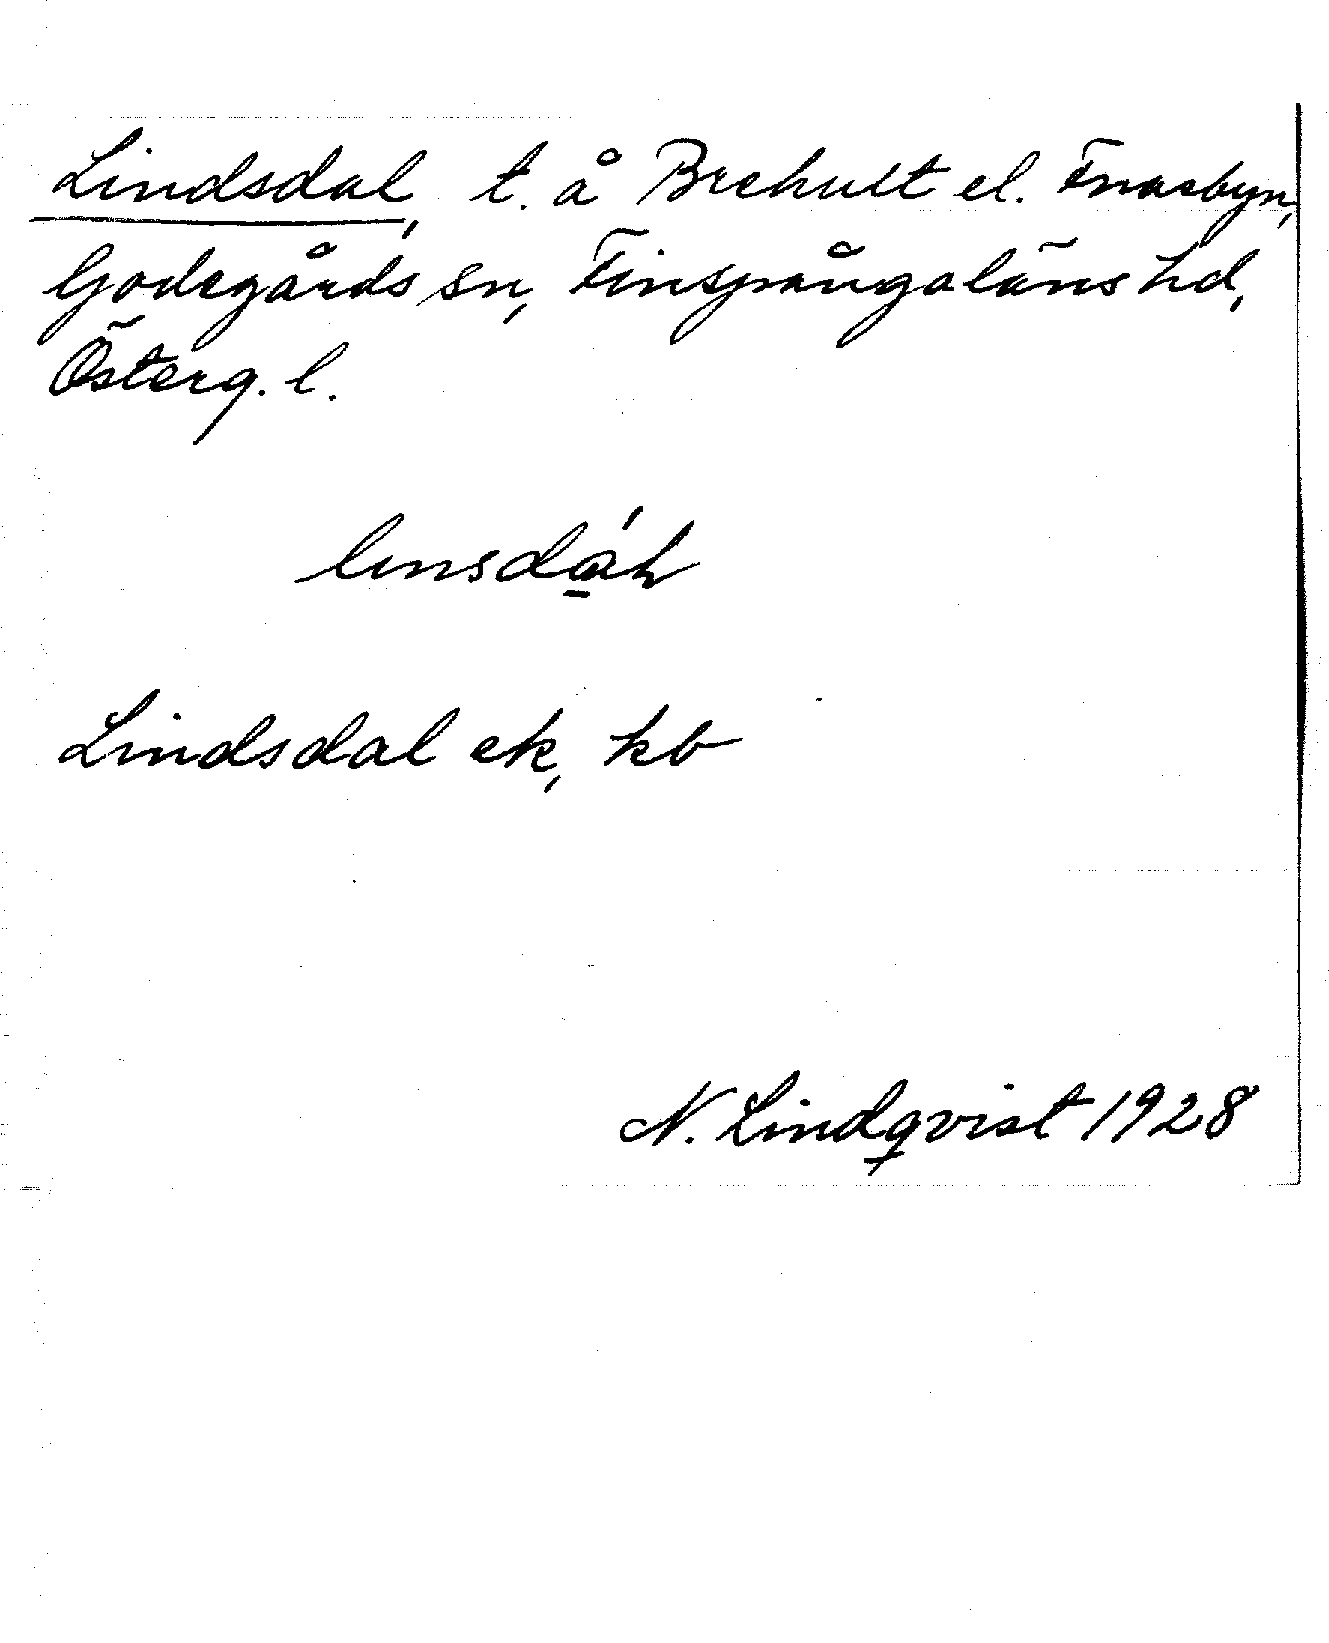 Lindsdal, t. å Brehult el. Fnasbyn,
Godegårds sn, Finspångaläns hd,
Österg. l.
Lindsdal ek, kb
N. Lindqvist 1928